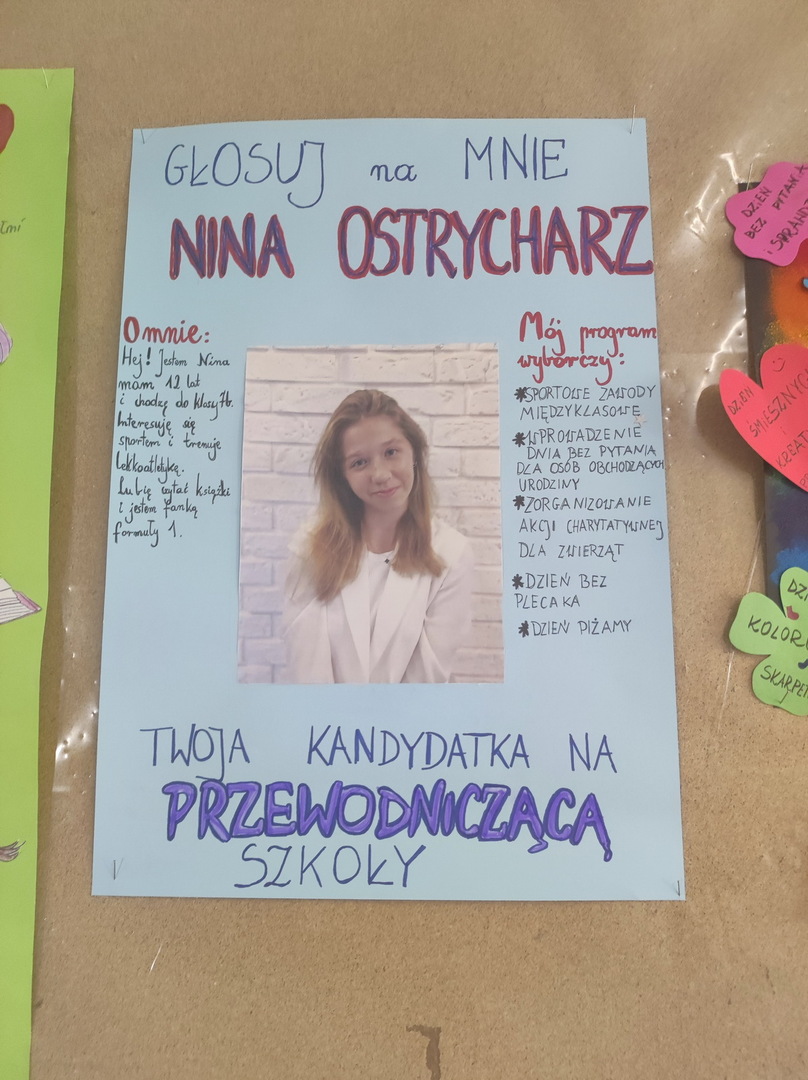 GŁOSUJ na MNIE
NINA OSTRYCHARZ
O mnie:
Hej! Jestem Nina
mam 12 lat
i chodzę do klasy 7b.
Interesuję się
sportem i trenuję
lekkoatletykę.
Lubię czytać książki
i jestem fanką
formuły 1.
Mój program
wyborczy:
*SPORTOWE ZAWODY
MIĘDZYKLASOWE
*WPROWADZENIE
DNIA BEZ PYTANIA
DLA OSÓB OBCHODZĄCYCH
URODZINY
*ZORGANIZOWANIE
AKCJI CHARYTATYWNEJ
DLA ZWIERZĄT
*DZIEŃ BEZ
PLECAKA
*DZIEŃ PIŻAMY
TWOJA KANDYDATKA NA
PRZEWODNICZĄCĄ
SZKOŁY
DZIEŃ
BEZ PYTANIA
DZIEŃ